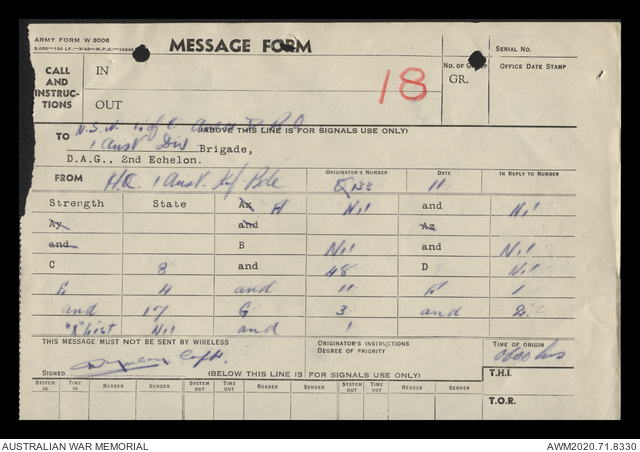 ARMY FORM W 3006
MESSAGE FORM
SERIAL NO.
CALL AND INSTRUCTIONS
IN
OUT
No. of Group
GR.
OFFICE DATE STAMP
18
(ABOVE THIS LINE IS FOR SIGNALS USE ONLY)
N.S.W. L of C
TO 1 Aust Div Brigade,
D.A.G., 2nd Echelon.
FROM HQ. 1 Aust. Inf Bde
ORIGINATOR'S NUMBER Q133
DATE 11
IN REPLY TO NUMBER
Strength State Ax A Nil and Nil
Ay and Az
and B Nil and Nil
C 8 and 48 D Nil
E 4 and 11 F 1
and 17 G 3 and 2
"X" List Nil and 1
THIS MESSAGE MUST NOT BE SENT BY WIRELESS
ORIGINATOR'S INSTRUCTIONS
DEGREE OF PRIORITY
TIME OF ORIGIN
0600 hrs
SIGNED Capt.
(BELOW THIS LINE IS FOR SIGNALS USE ONLY)
T.H.I.
SYSTEM IN TIME IN READER SENDER SYSTEM OUT TIME OUT READER SENDER SYSTEM OUT TIME OUT READER SENDER
T.O.R.
AUSTRALIAN WAR MEMORIAL
AWM2020.71.8330